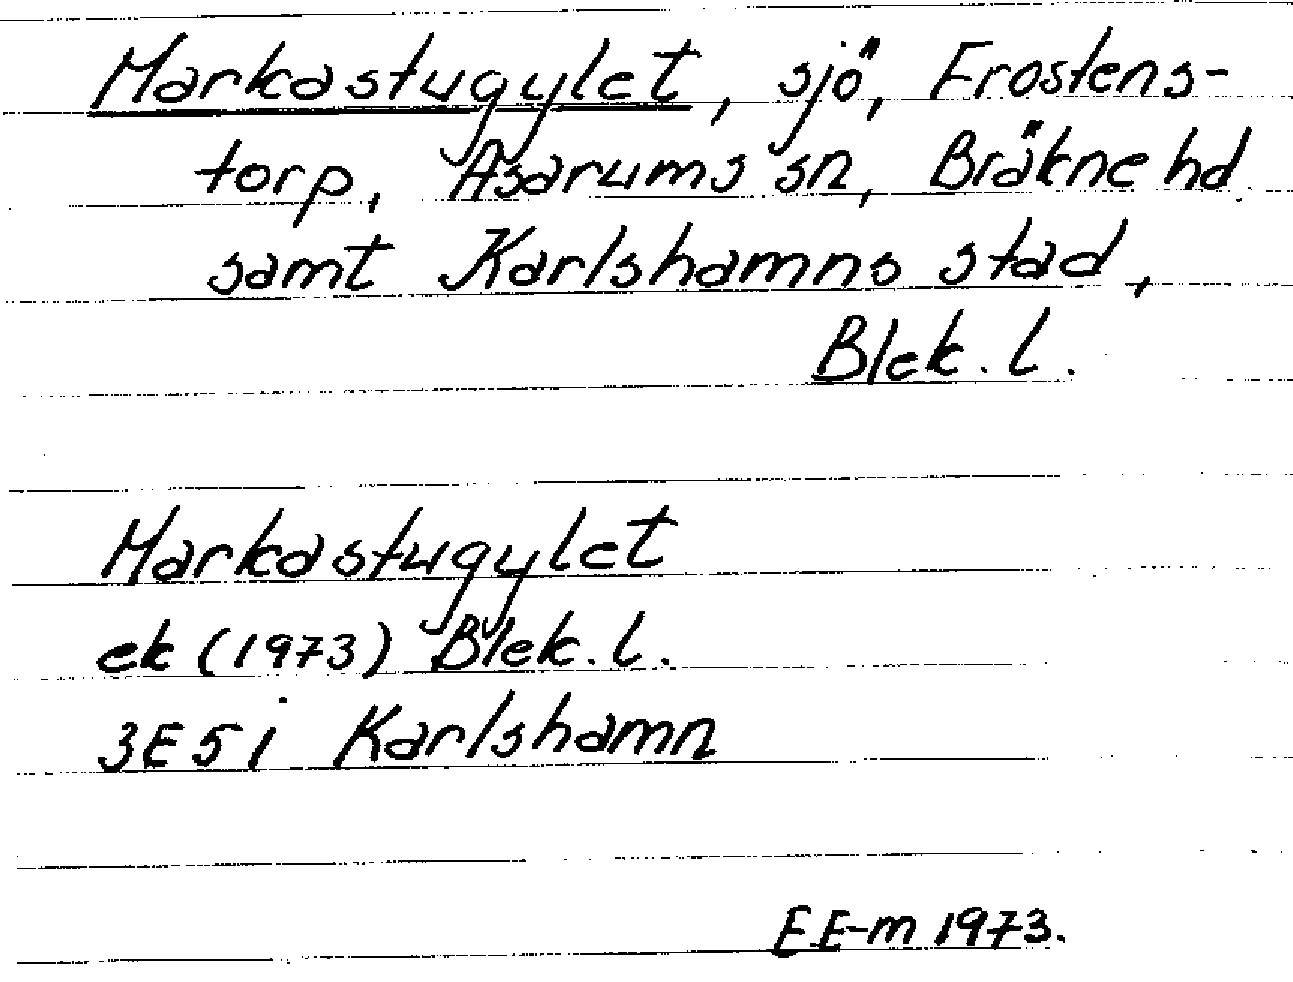 Markastugylet, sjö, Frostens-
torp, Asarums sn, Bräkne hd
samt Karlshamns stad,
Blek. l.
Markastugylet
ek (1973) Blek. l.
3E5i Karlshamn
EE-m 1973.